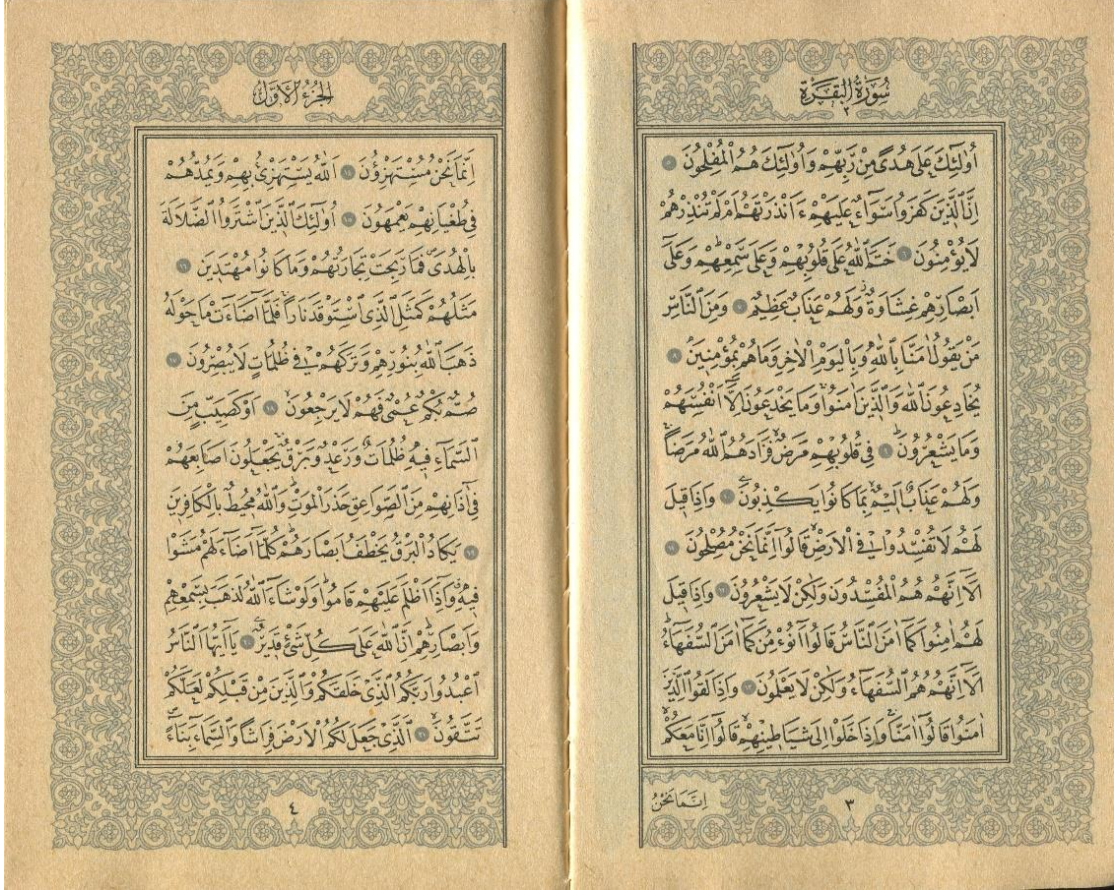 سُورَةُ الْبَقَرَةِ
٢
اُو۬لٰٓئِكَ عَلٰى هُدًى مِنْ رَبِّهِمْ وَاُو۬لٰٓئِكَ هُمُ الْمُفْلِحُونَ ٥
اِنَّ الَّذِينَ كَفَرُوا سَوَٓاءٌ عَلَيْهِمْ ءَاَنْذَرْتَهُمْ اَمْ لَمْ تُنْذِرْهُمْ
لَا يُؤْمِنُونَ ٦ خَتَمَ اللّٰهُ عَلٰى قُلُوبِهِمْ وَعَلٰى سَمْعِهِمْ وَعَلٰٓى
اَبْصَارِهِمْ غِشَاوَةٌ وَلَهُمْ عَذَابٌ عَظِيمٌ ٧ وَمِنَ النَّاسِ
مَنْ يَقُولُ اٰمَنَّا بِاللّٰهِ وَبِالْيَوْمِ الْاٰخِرِ وَمَا هُمْ بِمُؤْمِنِينَ ٨
يُخَادِعُونَ اللّٰهَ وَالَّذِينَ اٰمَنُوا وَمَا يَخْدَعُونَ اِلَّٓا اَنْفُسَهُمْ
وَمَا يَشْعُرُونَ ٩ فِي قُلُوبِهِمْ مَرَضٌ فَزَادَهُمُ اللّٰهُ مَرَضًا
وَلَهُمْ عَذَابٌ اَلِيمٌ بِمَا كَانُوا يَكْذِبُونَ ١٠ وَاِذَا قِيلَ
لَهُمْ لَا تُفْسِدُوا فِي الْاَرْضِ قَالُٓوا اِنَّمَا نَحْنُ مُصْلِحُونَ ١١
اَلَٓا اِنَّهُمْ هُمُ الْمُفْسِدُونَ وَلٰكِنْ لَا يَشْعُرُونَ ١٢ وَاِذَا قِيلَ
لَهُمْ اٰمِنُوا كَمَٓا اٰمَنَ النَّاسُ قَالُٓوا اَنُؤْمِنُ كَمَٓا اٰمَنَ السُّفَهَٓاءُ
اَلَٓا اِنَّهُمْ هُمُ السُّفَهَٓاءُ وَلٰكِنْ لَا يَعْلَمُونَ ١٣ وَاِذَا لَقُوا الَّذِينَ
اٰمَنُوا قَالُٓوا اٰمَنَّا وَاِذَا خَلَوْا اِلٰى شَيَاطِينِهِمْ قَالُٓوا اِنَّا مَعَكُمْ
٣
اِنَّمَا نَحْنُ
اَلْجُزْءُ الْاَوَّلُ
اِنَّمَا نَحْنُ مُسْتَهْزِؤُنَ ١٤ اَللّٰهُ يَسْتَهْزِئُ بِهِمْ وَيَمُدُّهُمْ
فِي طُغْيَانِهِمْ يَعْمَهُونَ ١٥ اُو۬لٰٓئِكَ الَّذِينَ اشْتَرَوُا الضَّلَالَةَ
بِالْهُدٰى فَمَا رَبِحَتْ تِجَارَتُهُمْ وَمَا كَانُوا مُهْتَدِينَ ١٦
مَثَلُهُمْ كَمَثَلِ الَّذِي اسْتَوْقَدَ نَارًا فَلَمَّٓا اَضَٓاءَتْ مَا حَوْلَهُ
ذَهَبَ اللّٰهُ بِنُورِهِمْ وَتَرَكَهُمْ فِي ظُلُمَاتٍ لَا يُبْصِرُونَ ١٧
صُمٌّ بُكْمٌ عُمْيٌ فَهُمْ لَا يَرْجِعُونَ ١٨ اَوْ كَصَيِّبٍ مِنَ
السَّمَٓاءِ فِيهِ ظُلُمَاتٌ وَرَعْدٌ وَبَرْقٌ يَجْعَلُونَ اَصَابِعَهُمْ
فِٓي اٰذَانِهِمْ مِنَ الصَّوَاعِقِ حَذَرَ الْمَوْتِ وَاللّٰهُ مُحِيطٌ بِالْكَافِرِينَ
١٩ يَكَادُ الْبَرْقُ يَخْطَفُ اَبْصَارَهُمْ كُلَّمَٓا اَضَٓاءَ لَهُمْ مَشَوْا
فِيهِ وَاِذَٓا اَظْلَمَ عَلَيْهِمْ قَامُوا وَلَوْ شَٓاءَ اللّٰهُ لَذَهَبَ بِسَمْعِهِمْ
وَاَبْصَارِهِمْ اِنَّ اللّٰهَ عَلٰى كُلِّ شَيْءٍ قَدِيرٌ ٢٠ يَٓا اَيُّهَا النَّاسُ
اعْبُدُوا رَبَّكُمُ الَّذِي خَلَقَكُمْ وَالَّذِينَ مِنْ قَبْلِكُمْ لَعَلَّكُمْ
تَتَّقُونَ ٢١ اَلَّذِي جَعَلَ لَكُمُ الْاَرْضَ فِرَاشًا وَالسَّمَٓاءَ بِنَٓاءً
٤